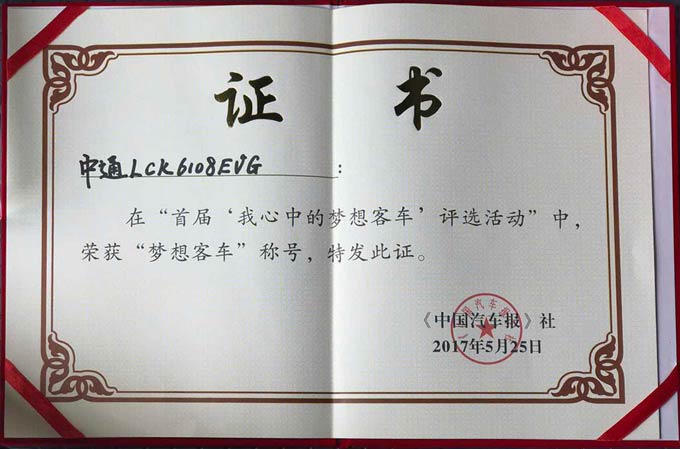 证 书
中通LCK6108EVG：
在“首届‘我心中的梦想客车’评选活动”中，
荣获“梦想客车”称号，特发此证。
《中国汽车报》社
2017年5月25日